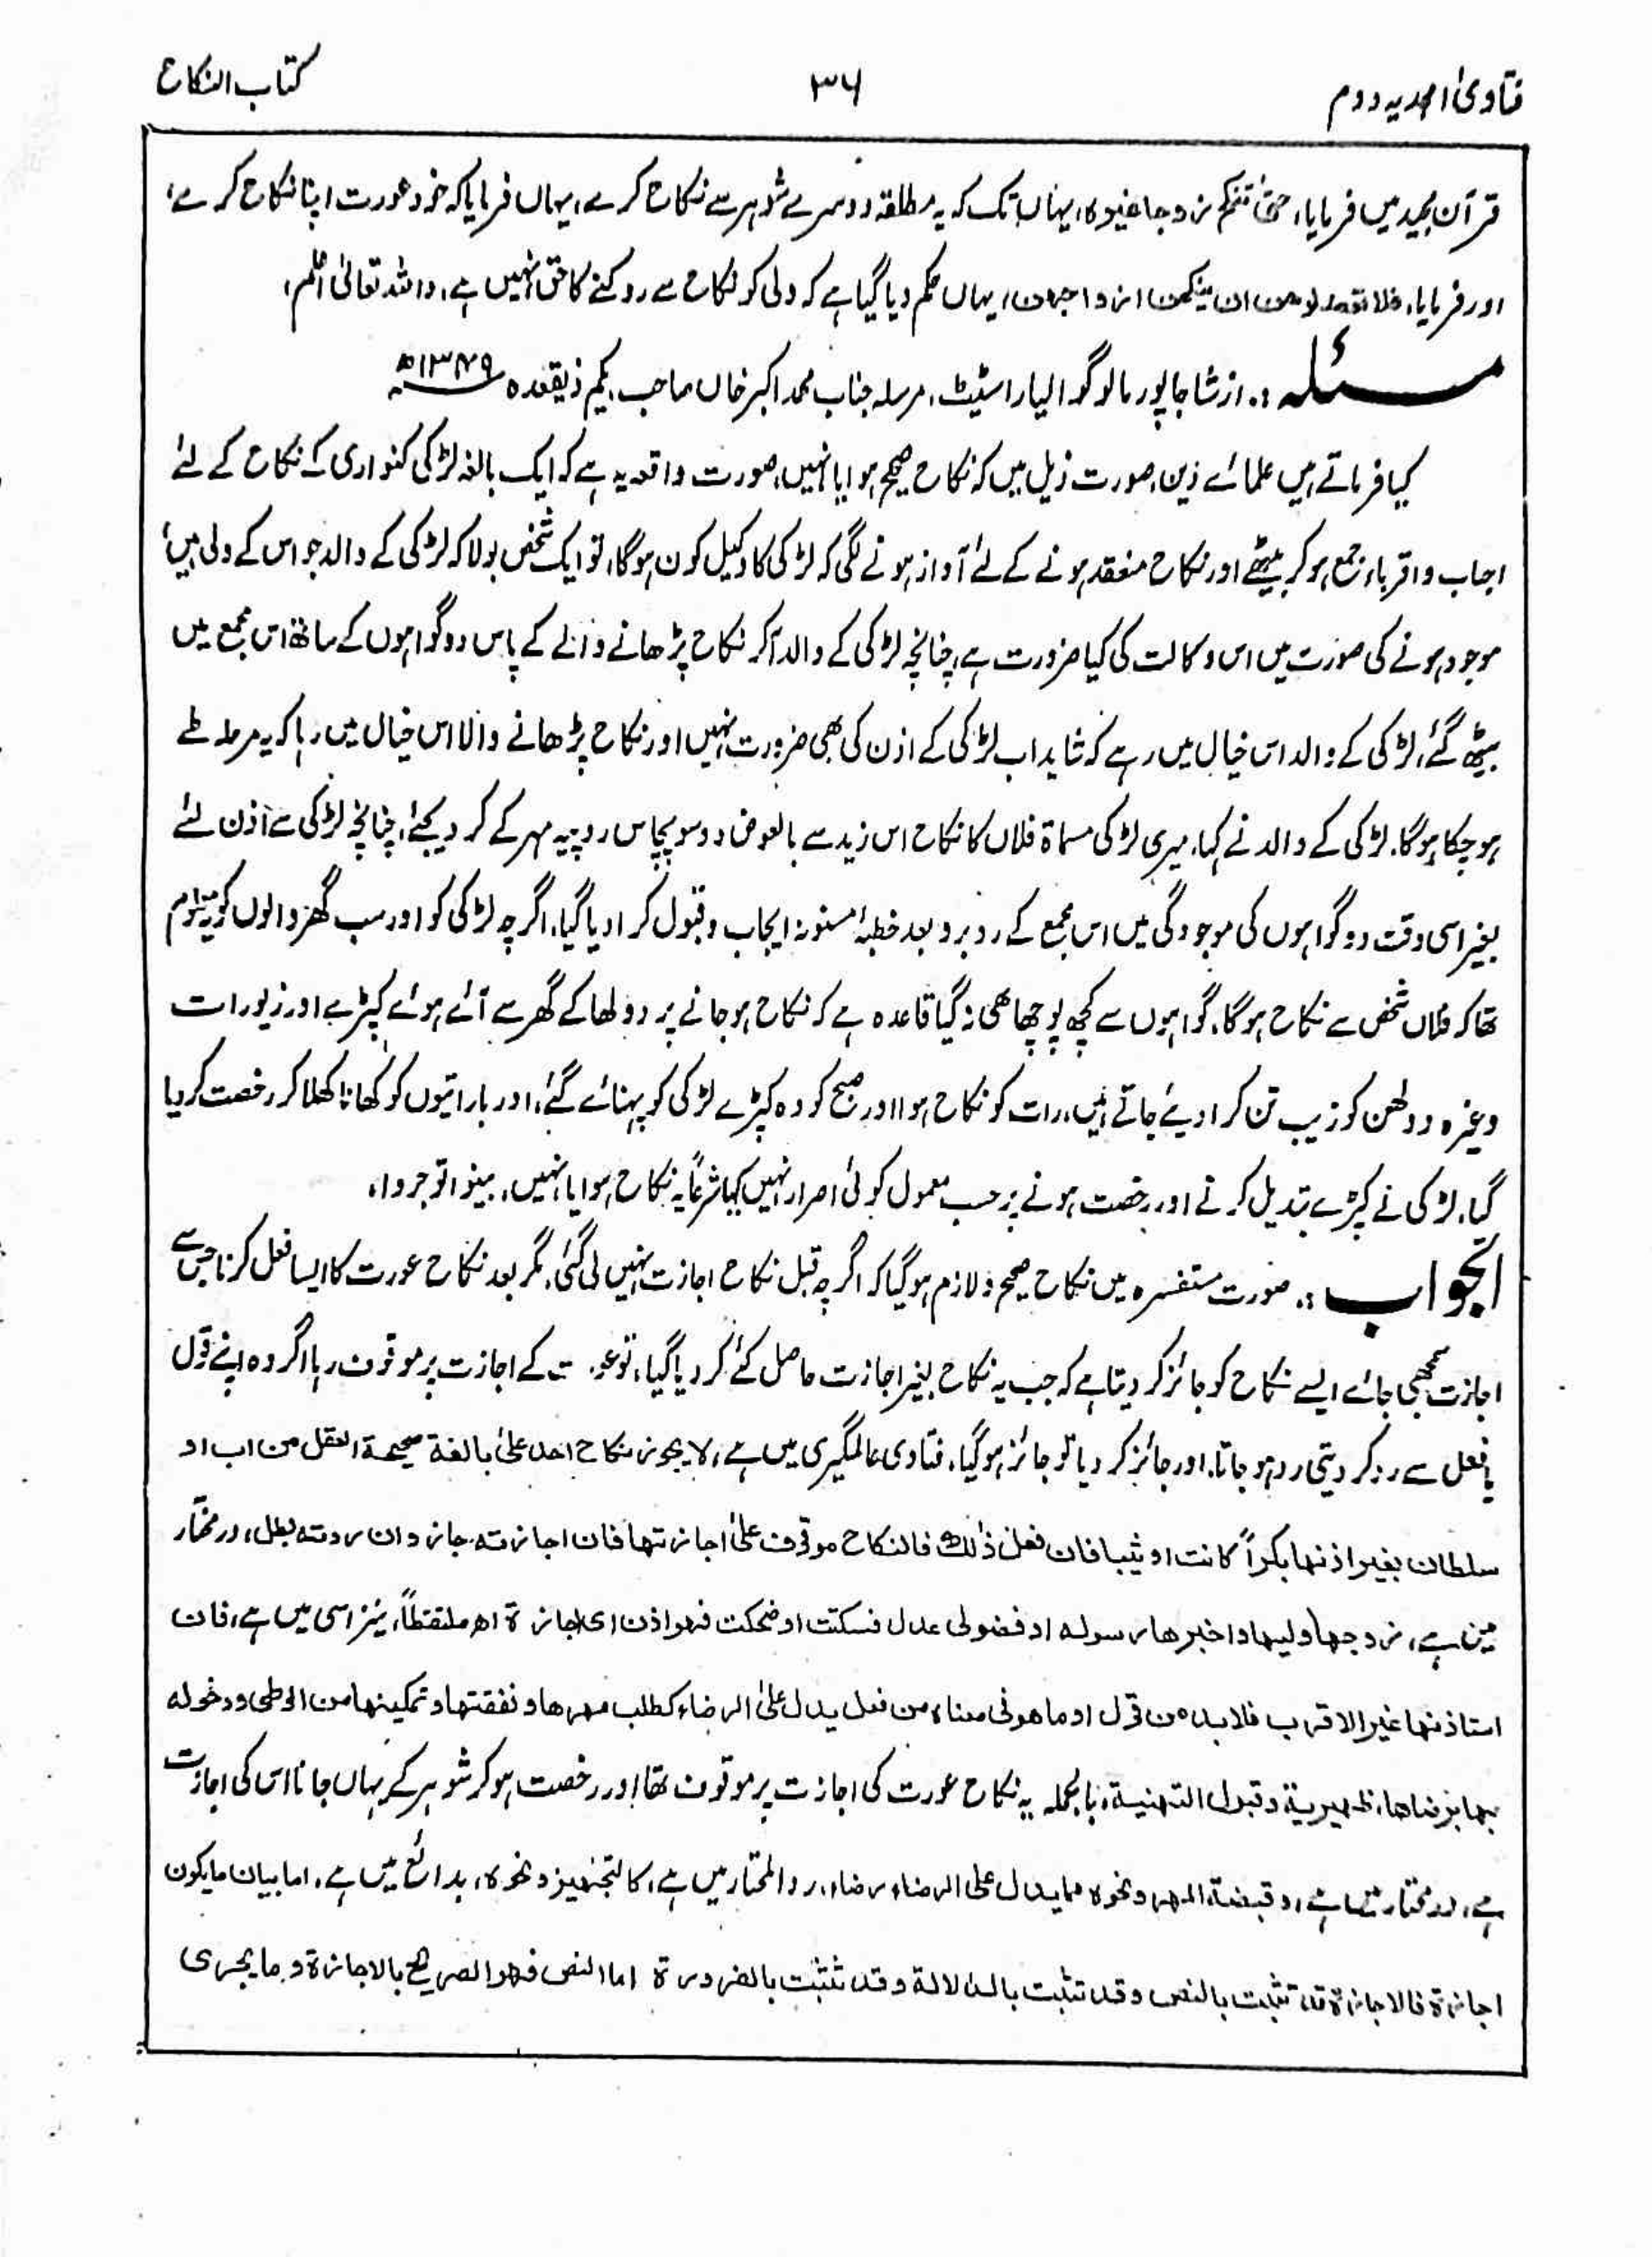 فتاویٰ امجدیہ دوم
۳۶
کتاب النکاح
قرآن مجید میں فرمایا، حتیٰ تنکح زوجا غیرہ، یہاں تک کہ یہ مطلقہ دوسرے شوہر سے نکاح کرے، یہاں فرمایا کہ خود عورت اپنا نکاح کرے،
اور فرمایا، فلا تعضلوهن ان ینکحن ازواجهن، یہاں حکم دیا گیا ہے کہ ولی کو نکاح سے روکنے کا حق نہیں ہے، واللہ تعالیٰ اعلم،
مسئلہ :۔ از شاجاپور مالوگوالیار اسٹیٹ، مرسلہ جناب محمد اکبر خاں صاحب یکم ذیقعدہ ۱۳۴۹ھ
کیا فرماتے ہیں علمائے دین صورت ذیل میں کہ نکاح صحیح ہوا یا نہیں، صورت واقعہ یہ ہے کہ ایک بالغہ لڑکی کنواری کے نکاح کے لئے
احباب و اقرباء جمع ہو کر بیٹھے اور نکاح منعقد ہونے کے لئے آواز ہونے لگی کہ لڑکی کا وکیل کون ہوگا، تو ایک شخص بولا کہ لڑکی کے والد جو اس کے ولی ہیں،
موجود ہونے کی صورت میں اس وکالت کی کیا ضرورت ہے، چنانچہ لڑکی کے والد آکر نکاح پڑھانے والے کے پاس دو گواہوں کے ساتھ اس مجمع میں
بیٹھ گئے، لڑکی کے والد اس خیال میں رہے کہ شاید اب لڑکی کے اذن کی بھی ضرورت نہیں اور نکاح پڑھانے والا اس خیال میں رہا کہ یہ مرحلہ طے
ہو چکا ہوگا، لڑکی کے والد نے کہا، میری لڑکی مسماۃ فلاں کا نکاح اس زید سے بالعوض دو سو پچاس روپیہ مہر کے کر دیجئے، چنانچہ لڑکی سے اذن لئے
بغیر اسی وقت دو گواہوں کی موجودگی میں اس مجمع کے روبرو بعد خطبۂ مسنونہ ایجاب و قبول کرا دیا گیا، اگرچہ لڑکی کو اور سب گھر والوں کو یہ معلوم
تھا کہ فلاں شخص سے نکاح ہوگا، گواہوں سے کچھ پوچھا بھی نہ گیا قاعدہ ہے کہ نکاح ہو جانے پر دولھا کے گھر سے آئے ہوئے کپڑے اور زیورات
وغیرہ دولھن کو زیب تن کرا دیئے جاتے ہیں، رات کو نکاح ہوا اور صبح کو وہ کپڑے لڑکی کو پہنائے گئے، اور باراتیوں کو کھانا کھلا کر رخصت کر دیا
گیا، لڑکی نے کپڑے تبدیل کرنے اور رخصت ہونے پر حسب معمول کوئی اصرار نہیں کیا شرعاً یہ نکاح ہوا یا نہیں، بینوا توجروا،
الجواب :۔ صورت مستفسرہ میں نکاح صحیح و لازم ہو گیا کہ اگرچہ قبل نکاح اجازت نہیں لی گئی، مگر بعد نکاح عورت کا ایسا فعل کرنا جس سے
اجازت سمجھی جائے ایسے نکاح کو جائز کر دیتا ہے کہ جب یہ نکاح بغیر اجازت حاصل کئے کر دیا گیا، تو عورت کے اجازت پر موقوف رہا اگر وہ اپنے قول
یا فعل سے رد کر دیتی رد ہو جاتا، اور جائز کر دیا تو جائز ہو گیا، فتاویٰ عالمگیری میں ہے، لا یجوز نکاح احد علیٰ بالغة صحیحة العقل من اب او
سلطان بغیر اذنها بکراً کانت او ثیبا فان فعل ذٰلک فالنکاح موقوف علیٰ اجازتها فان اجازته جاز وان ردته بطل، درمختار
میں ہے، زوجها ولیها واخبرها رسوله او فضولی عدل فسکتت او ضحکت فهو اذن ای اجازة اھ ملتقطاً، نیز اسی میں ہے، فان
استاذنها غیر الاقرب فلا بد من قول او ما هو فی معناه من فعل یدل علیٰ الرضاء کطلب مهرها ونفقتها وتمکینها من الوطی ودخوله
بها برضاها، ظهیریة وقبول التهنیة، بالجملہ یہ نکاح عورت کی اجازت پر موقوف تھا اور رخصت ہو کر شوہر کے یہاں جانا اس کی اجازت
ہے، درمختار میں ہے، وقبضة المهر ونحوه مما یدل علی الرضاء رضاء، رد المحتار میں ہے، کالتجهیز ونحوه، بدائع میں ہے، اما بیان ما یکون
اجازة فالاجازة قد تثبت بالنص وقد تثبت بالدلالة وقد تثبت بالضرورة اما النص فهو الصریح بالاجازة وما یجری